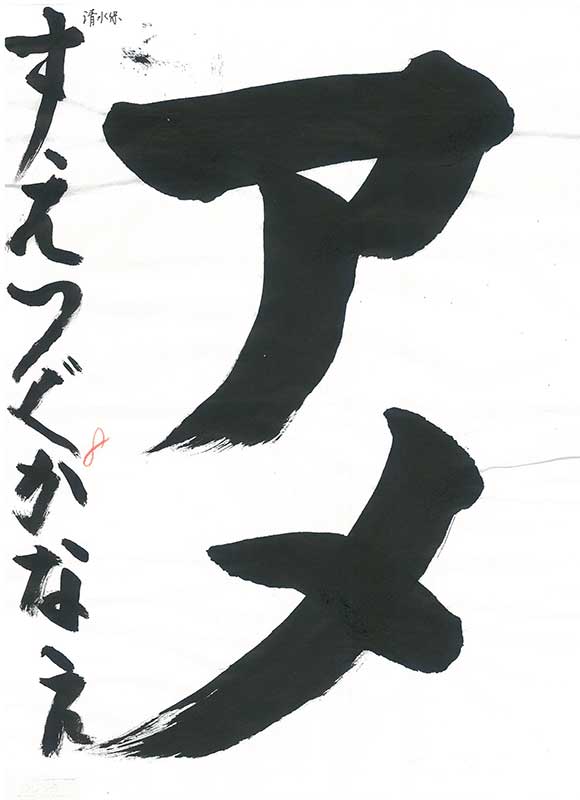 アメ
すえつぐかなえ
清水保